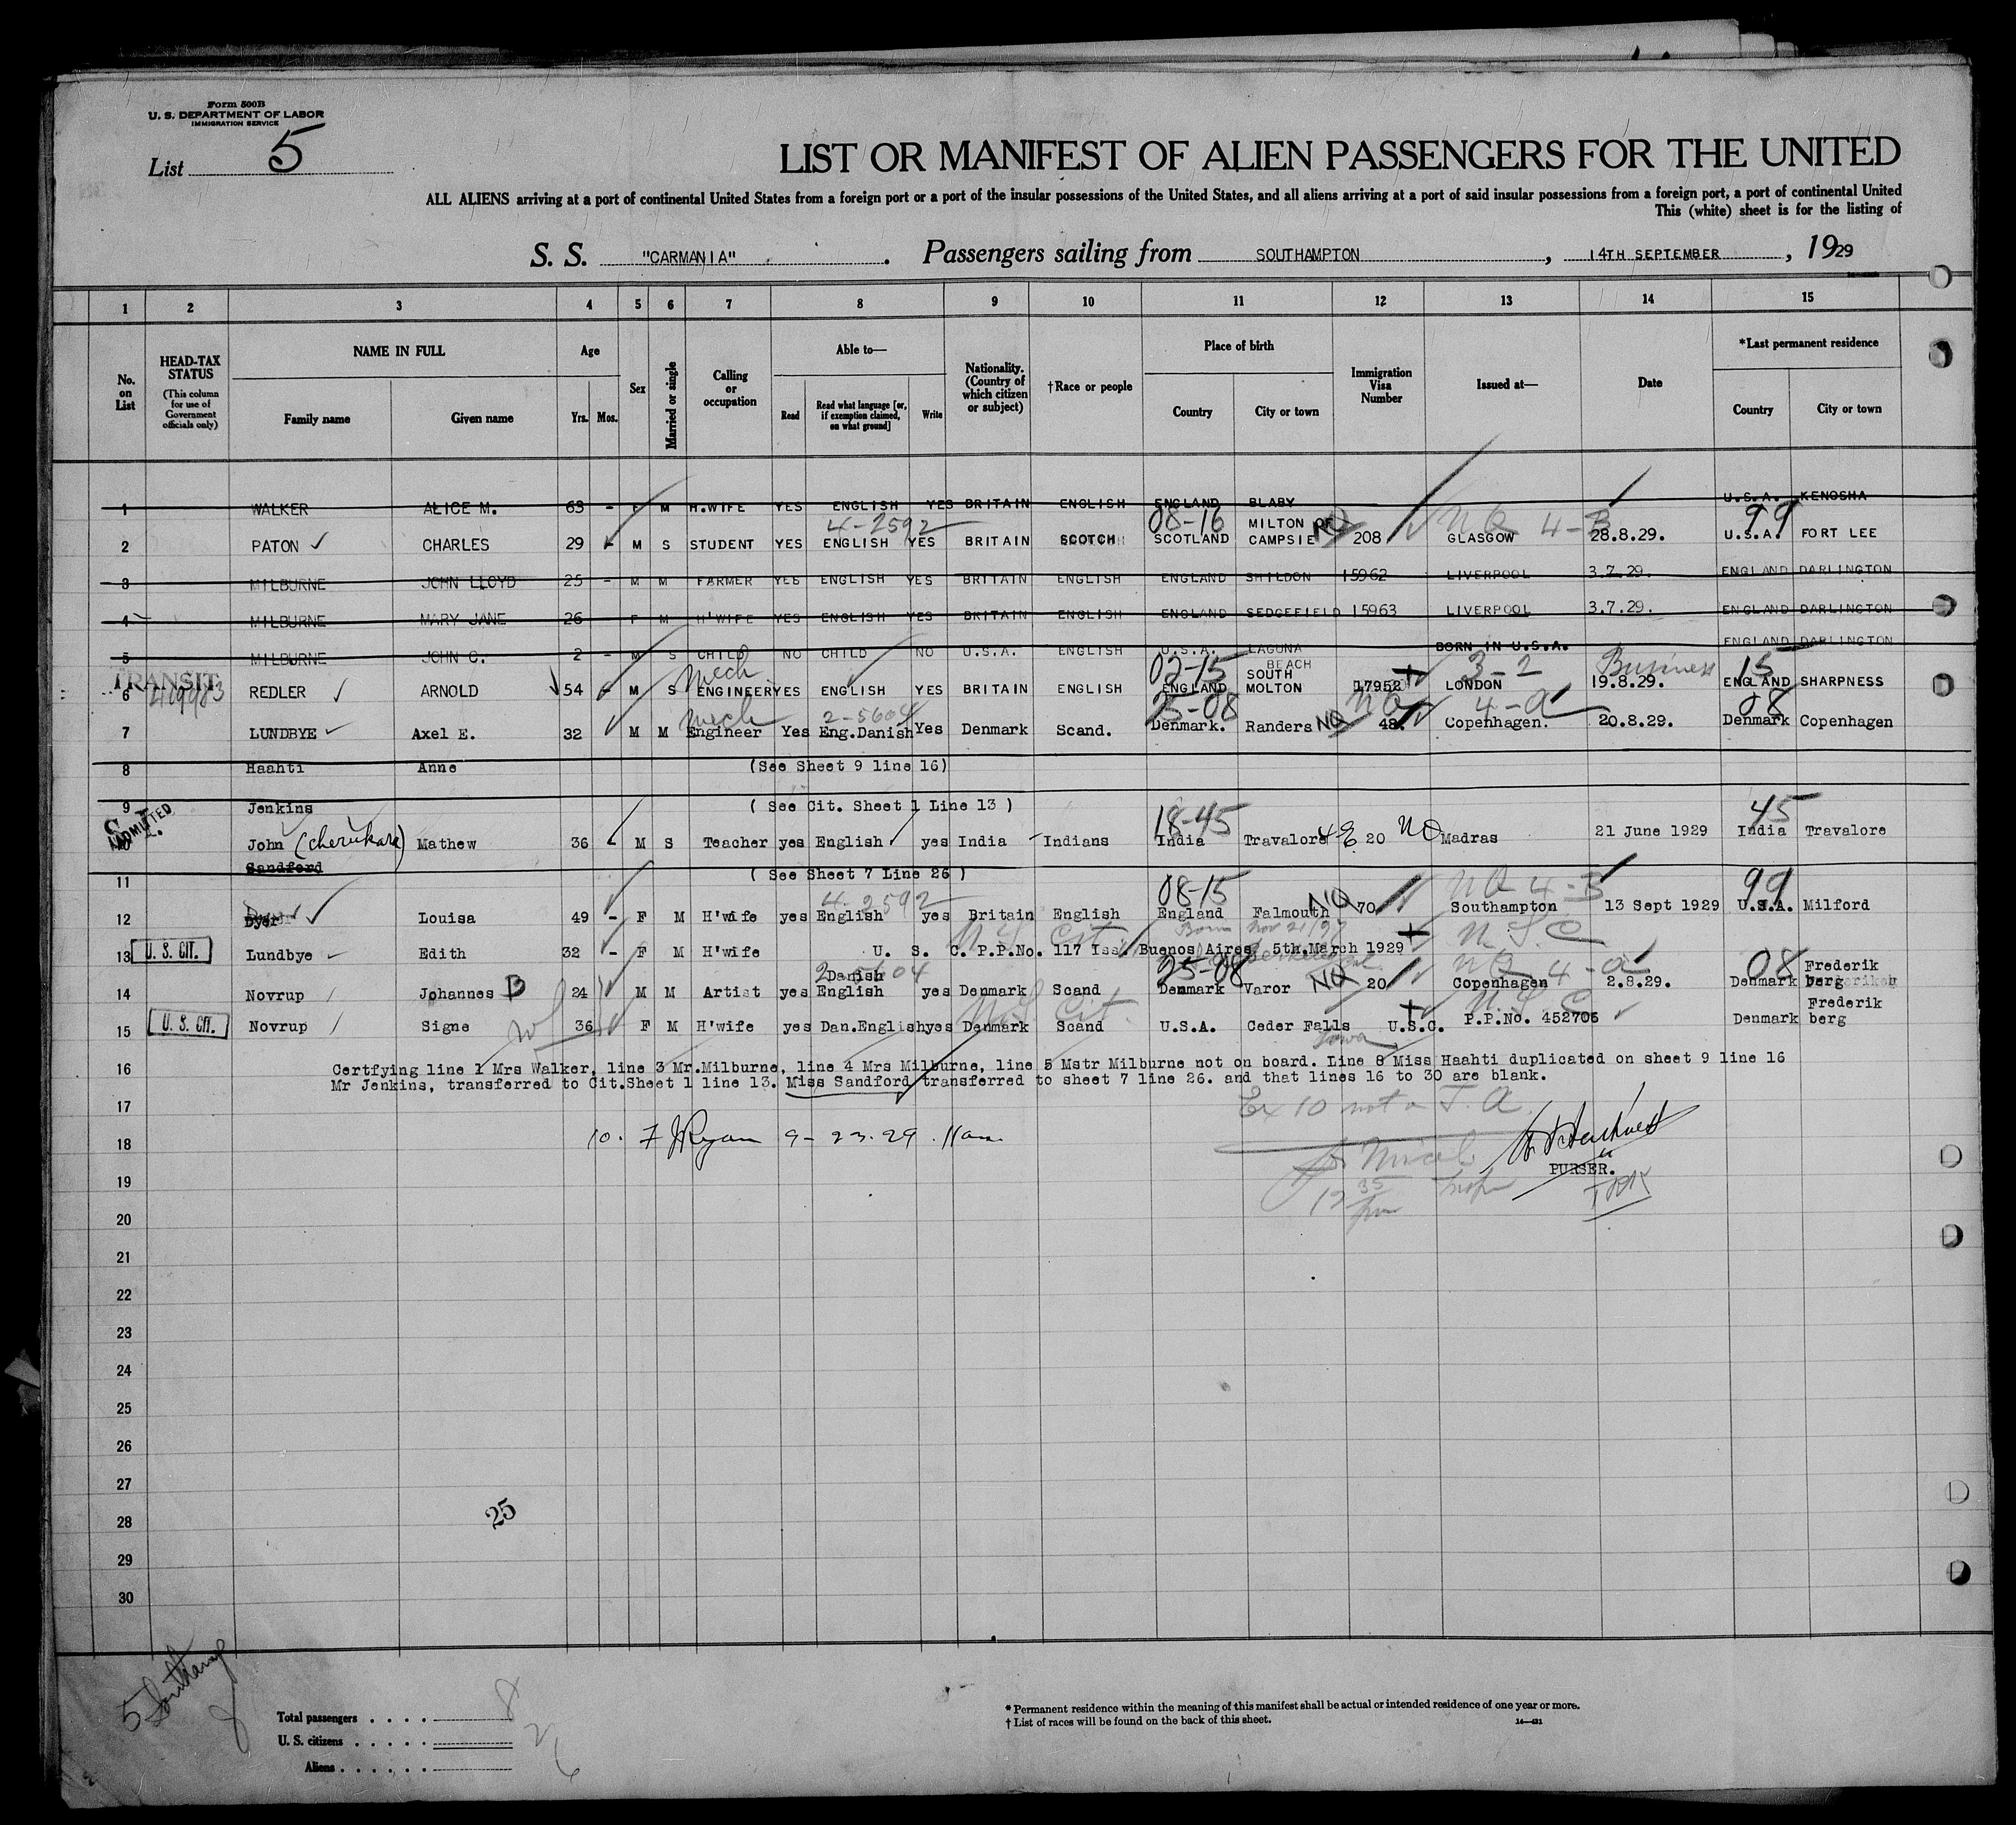 Form 500B
U. S. DEPARTMENT OF LABOR
IMMIGRATION SERVICE
List 5
LIST OR MANIFEST OF ALIEN PASSENGERS FOR THE UNITED
ALL ALIENS arriving at a port of continental United States from a foreign port or a port of the insular possessions of the United States, and all aliens arriving at a port of said insular possessions from a foreign port, a port of continental United
This (white) sheet is for the listing of
S. S. "CARMANIA". Passengers sailing from SOUTHAMPTON, 14TH SEPTEMBER, 1929
1 2 3 4 5 6 7 8 9 10 11 12 13 14 15
No. on List
HEAD-TAX STATUS (This column for use of Government officials only)
NAME IN FULL
Family name Given name
Age Yrs. Mos.
Sex
Married or single
Calling or occupation
Able to—
Read Read what language [or, if exemption claimed, on what ground] Write
Nationality. (Country of which citizen or subject)
†Race or people
Place of birth
Country City or town
Immigration Visa Number
Issued at—
Date
*Last permanent residence
Country City or town
1 WALKER ALICE M. 63 - F M H.WIFE YES ENGLISH YES BRITAIN ENGLISH ENGLAND BLABY U.S.A. KENOSHA
4-2592 08-16 NQ 4-B 99
2 PATON CHARLES 29 - M S STUDENT YES ENGLISH YES BRITAIN SCOTCH SCOTLAND MILTON OF CAMPSIE 208 GLASGOW 28.8.29. U.S.A. FORT LEE
3 MILBURNE JOHN LLOYD 25 - M M FARMER YES ENGLISH YES BRITAIN ENGLISH ENGLAND SHILDON 15962 LIVERPOOL 3.7.29. ENGLAND DARLINGTON
4 MILBURNE MARY JANE 26 - F M H'WIFE YES ENGLISH YES BRITAIN ENGLISH ENGLAND SEDGEFIELD 15963 LIVERPOOL 3.7.29. ENGLAND DARLINGTON
5 MILBURNE JOHN C. 2 - M S CHILD NO CHILD NO U.S.A. ENGLISH U.S.A. LAGUNA BEACH BORN IN U.S.A. ENGLAND DARLINGTON
TRANSIT Mech 02-15 3-2 Business 15
6 REDLER ARNOLD 54 - M S ENGINEER YES ENGLISH YES BRITAIN ENGLISH ENGLAND SOUTH MOLTON 17952 LONDON 19.8.29. ENGLAND SHARPNESS
mech 2-5604 25-08 NQ 4-a 08
7 LUNDBYE Axel E. 32 M M Engineer Yes Eng.Danish Yes Denmark Scand. Denmark. Randers NQ 48. Copenhagen. 20.8.29. Denmark Copenhagen
8 Haahti Anne (See Sheet 9 line 16)
9 Jenkins ( See Cit. Sheet 1 Line 13 )
ADMITTED 18-45 45
10 John (Cherukara) Mathew 36 - M S Teacher yes English yes India Indians India Travalore 4E 20 NQ Madras 21 June 1929 India Travalore
11 Sandford ( See Sheet 7 Line 26 )
4-2592 08-15 NQ NQ 4-B 99
12 Dyer Louisa 49 - F M H'wife yes English yes Britain English England Falmouth 70 Southampton 13 Sept 1929 U.S.A. Milford
Born Nov 21/97 U.S.C
13 U. S. CIT. Lundbye Edith 32 - F M H'wife U. S. C. P.P.No. 117 Iss. Buenos Aires, 5th.March 1929
2-5604 25-08 NQ NQ 4-a 08
14 Novrup Johannes B 24 M M Artist yes Danish English yes Denmark Scand Denmark Varor 20 Copenhagen 2.8.29. Denmark Frederik berg
U.S. Cit. U.S.C
15 U. S. CIT. Novrup Signe 36 F M H'wife yes Dan.English yes Denmark Scand U.S.A. Ceder Falls Iowa U.S.C. P.P.No. 452706 Denmark Frederik berg
16 Certfying line 1 Mrs Walker, line 3 Mr.Milburne, line 4 Mrs Milburne, line 5 Mstr Milburne not on board. Line 8 Miss Haahti duplicated on sheet 9 line 16
Mr Jenkins, transferred to Cit.Sheet 1 line 13. Miss Sandford transferred to sheet 7 line 26. and that lines 16 to 30 are blank.
17 Ex 10 not a T. A.
18 10. F J Ryan 9-23.29 11am
PURSER.
19 12 35 pm
20
21
22
23
24
25
26
27
28 25
29
30
5 Southamp 8
Total passengers . . . . 8
U. S. citizens . . . . . 2
Aliens . . . . . . 6
* Permanent residence within the meaning of this manifest shall be actual or intended residence of one year or more.
† List of races will be found on the back of this sheet.
14—421